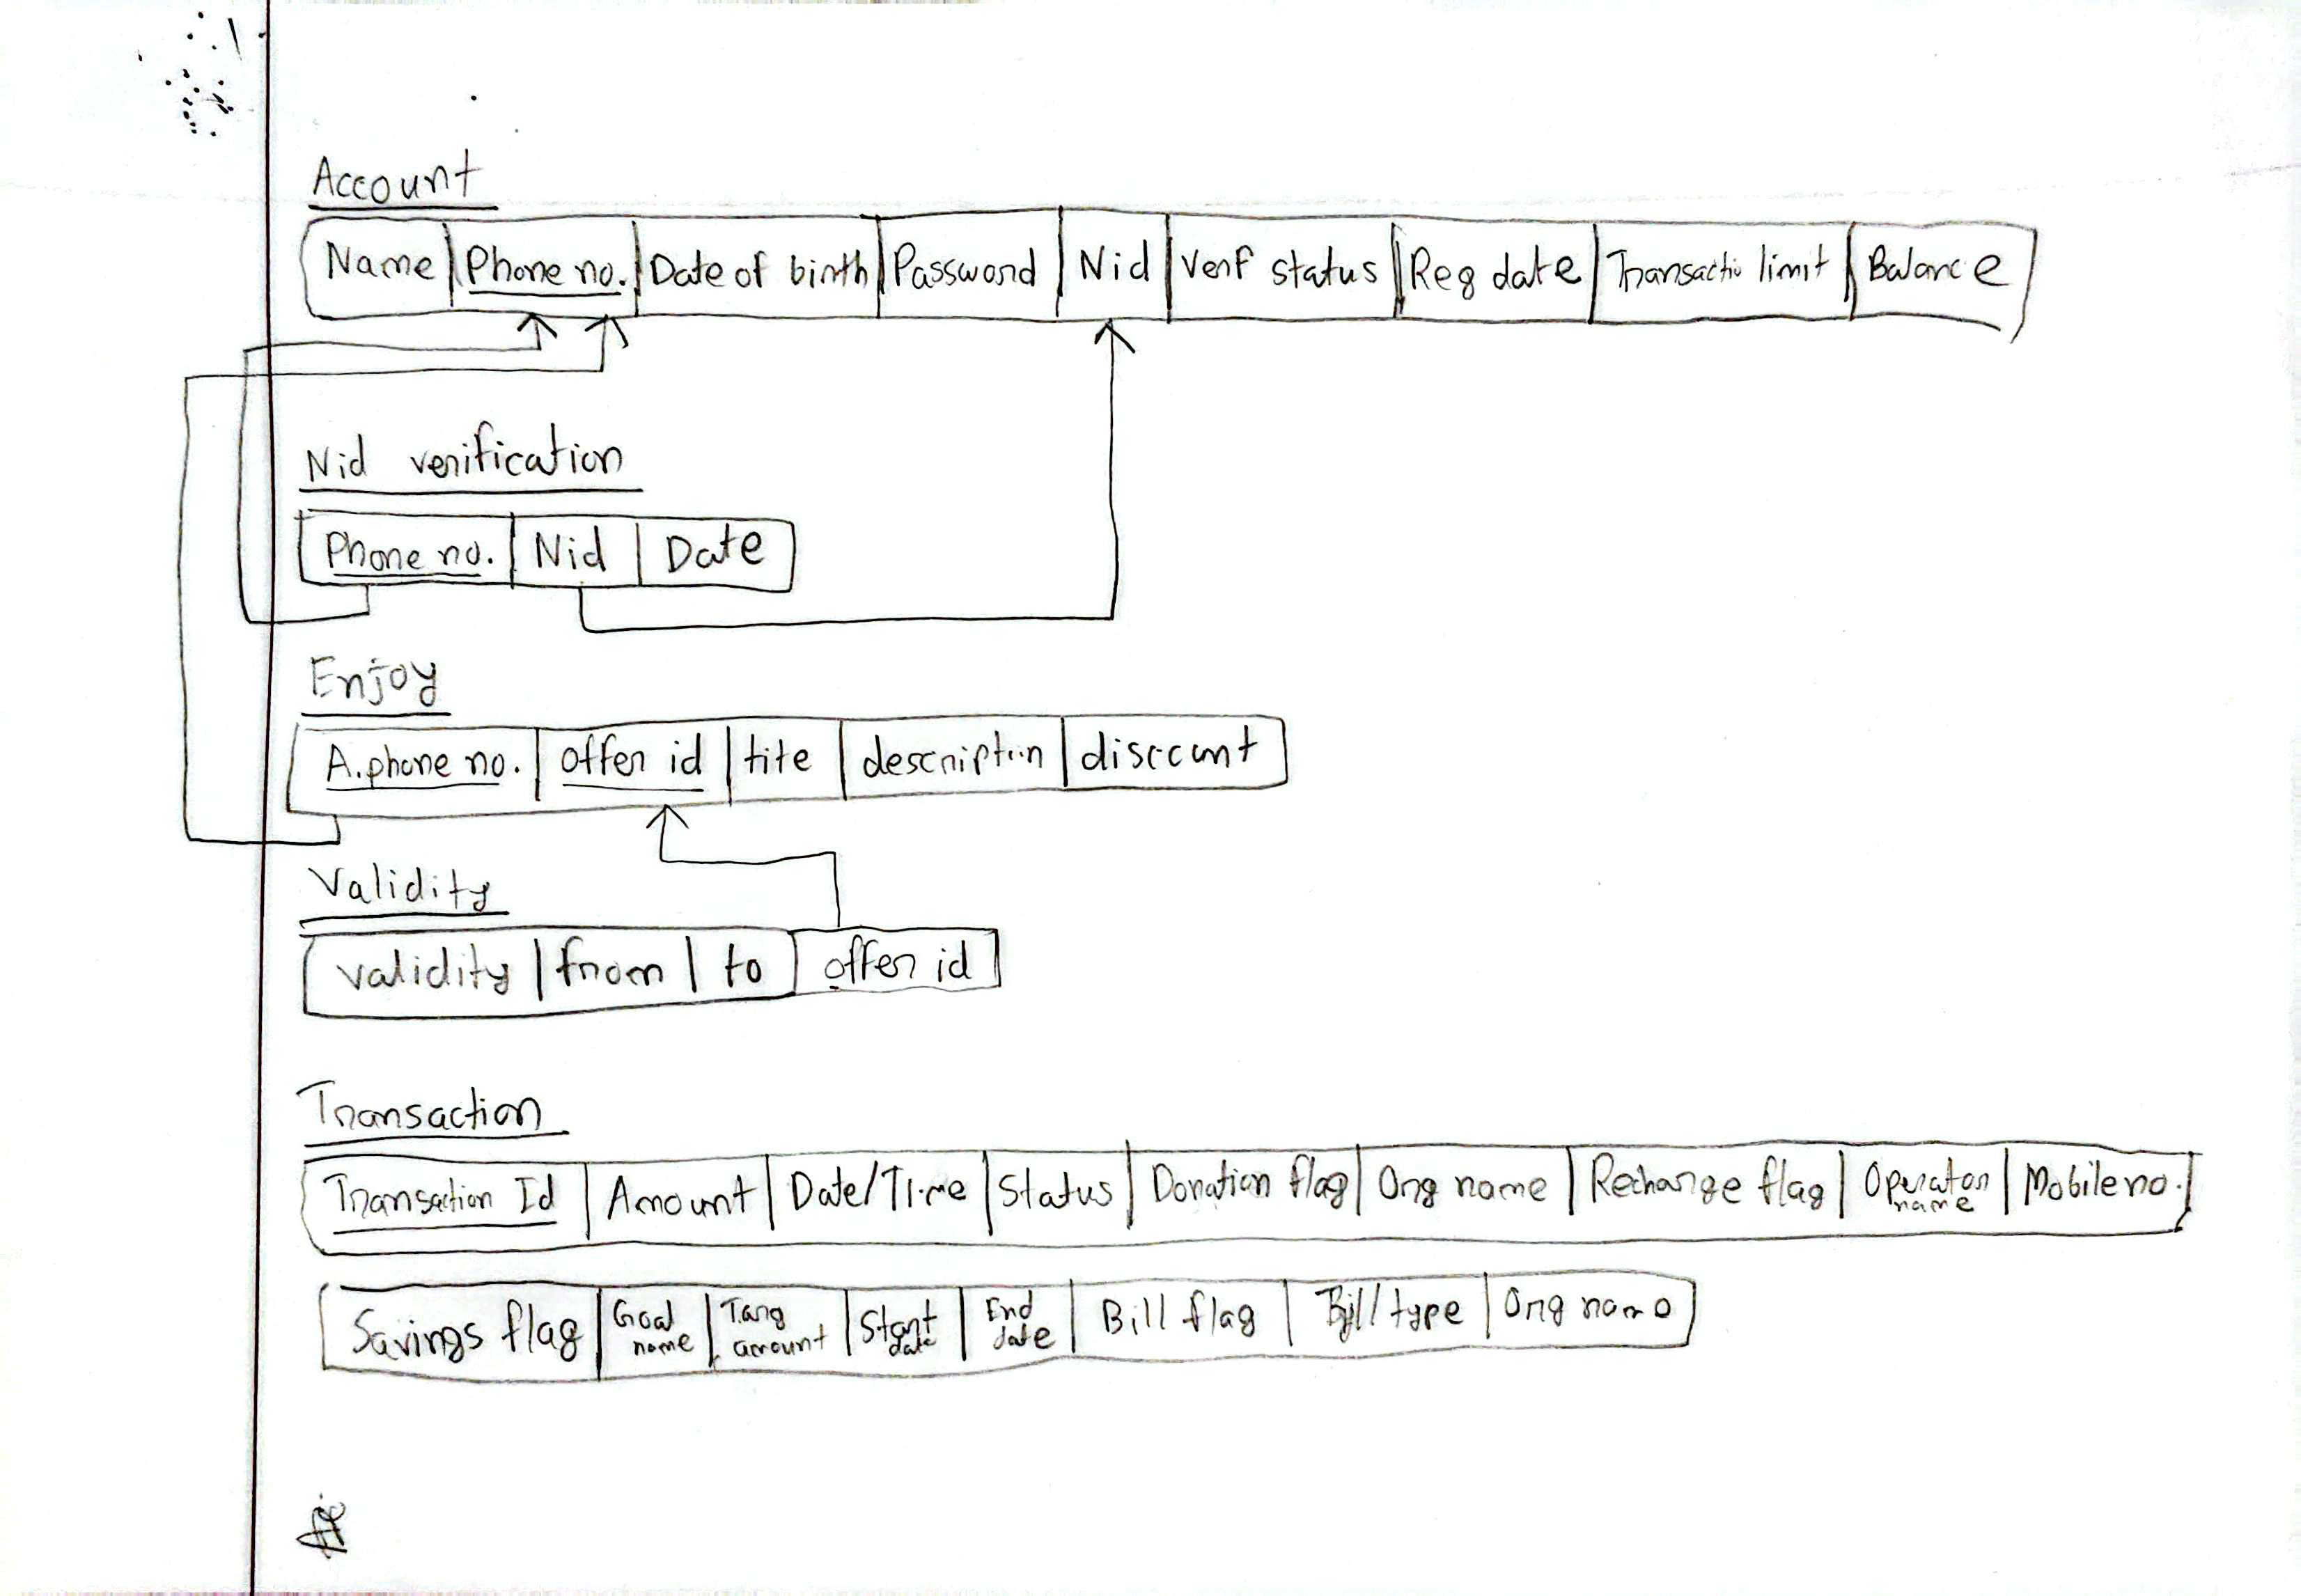 Account
Name Phone no. Date of birth Password Nid Verf status Reg date Transactio limit Balance
Nid verification
Phone no. Nid Date
Enjoy
A.phone no. offer id tite description discount
Validity
validity from to offer id
Transaction
Transaction Id Amount Date/Time Status Donation flag Org name Recharge flag Operator name Mobile no.
Savings flag Goal name Targ amount Start date End date Bill flag Bill type Org name